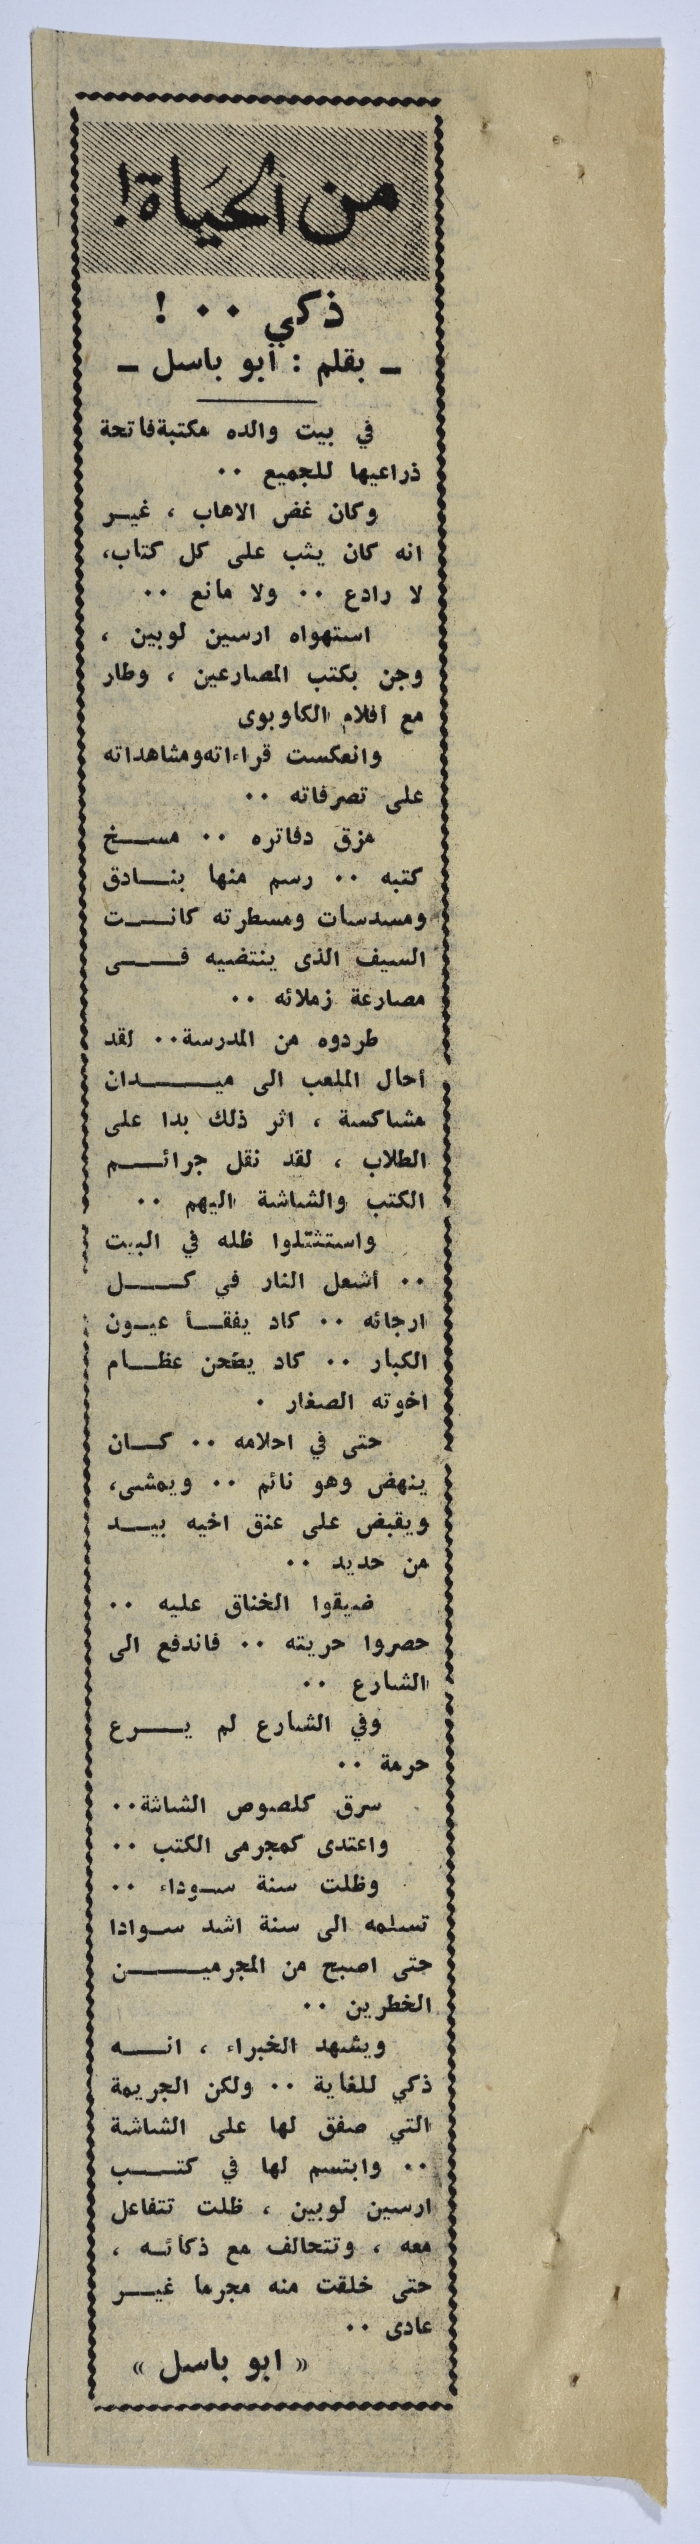 من الحَياة!
ذكي ٠٠ !
ـ بقلم : أبو باسل ـ
في بيت والده مكتبة فاتحة
ذراعيها للجميع ٠٠
وكان غض الاهاب ، غيـر
انه كان يثب على كل كتاب،
لا رادع ٠٠ ولا مانع ٠٠
استهواه ارسين لوبين ،
وجن بكتب المصارعين ، وطار
مع أفلام الكاوبوى
وانعكست قراءاته ومشاهداته
على تصرفاته ٠٠
مزق دفاتره ٠٠ مســخ
كتبه ٠٠ رسم منها بنـــادق
ومسدسات ومسطرته كانـــت
السيف الذى ينتضيه فــــى
مصارعة زملائه ٠٠
طردوه من المدرسة٠٠ لقد
أحال الملعب الى ميـــــدان
مشاكسة ، اثر ذلك بدا على
الطلاب ، لقد نقل جرائـــم
الكتب والشاشة اليهم ٠٠
واستثقلوا ظله في البيت
٠٠ أشعل النار في كـــــل
ارجائه ٠٠ كاد يفقــأ عيـون
الكبار ٠٠ كاد يطحن عظــام
اخوته الصغار ٠
حتى في احلامه ٠٠ كــان
ينهض وهو نائم ٠٠ ويمشى،
ويقبض على عنق اخيه بيــد
من حديد ٠٠
ضيقوا الخناق عليه ٠٠
حصروا حريته ٠٠ فاندفع الى
الشارع ٠٠
وفي الشارع لم يــــرع
حرمة ٠٠
سرق كلصوص الشاشة٠٠
واعتدى كمجرمى الكتب ٠٠
وظلت سنة سـوداء ٠٠
تسلمه الى سنة اشد سـوادا
حتى اصبح من المجرميـــــن
الخطرين ٠٠
ويشهد الخبراء ، انــــه
ذكي للغاية ٠٠ ولكن الجريمة
التي صفق لها على الشاشة
٠٠ وابتسم لها في كتـــب
ارسين لوبين ، ظلت تتفاعل
معه ، وتتحالف مع ذكائـه ،
حتى خلقت منه مجرما غيـــر
عادى ٠٠
« ابو باسل »